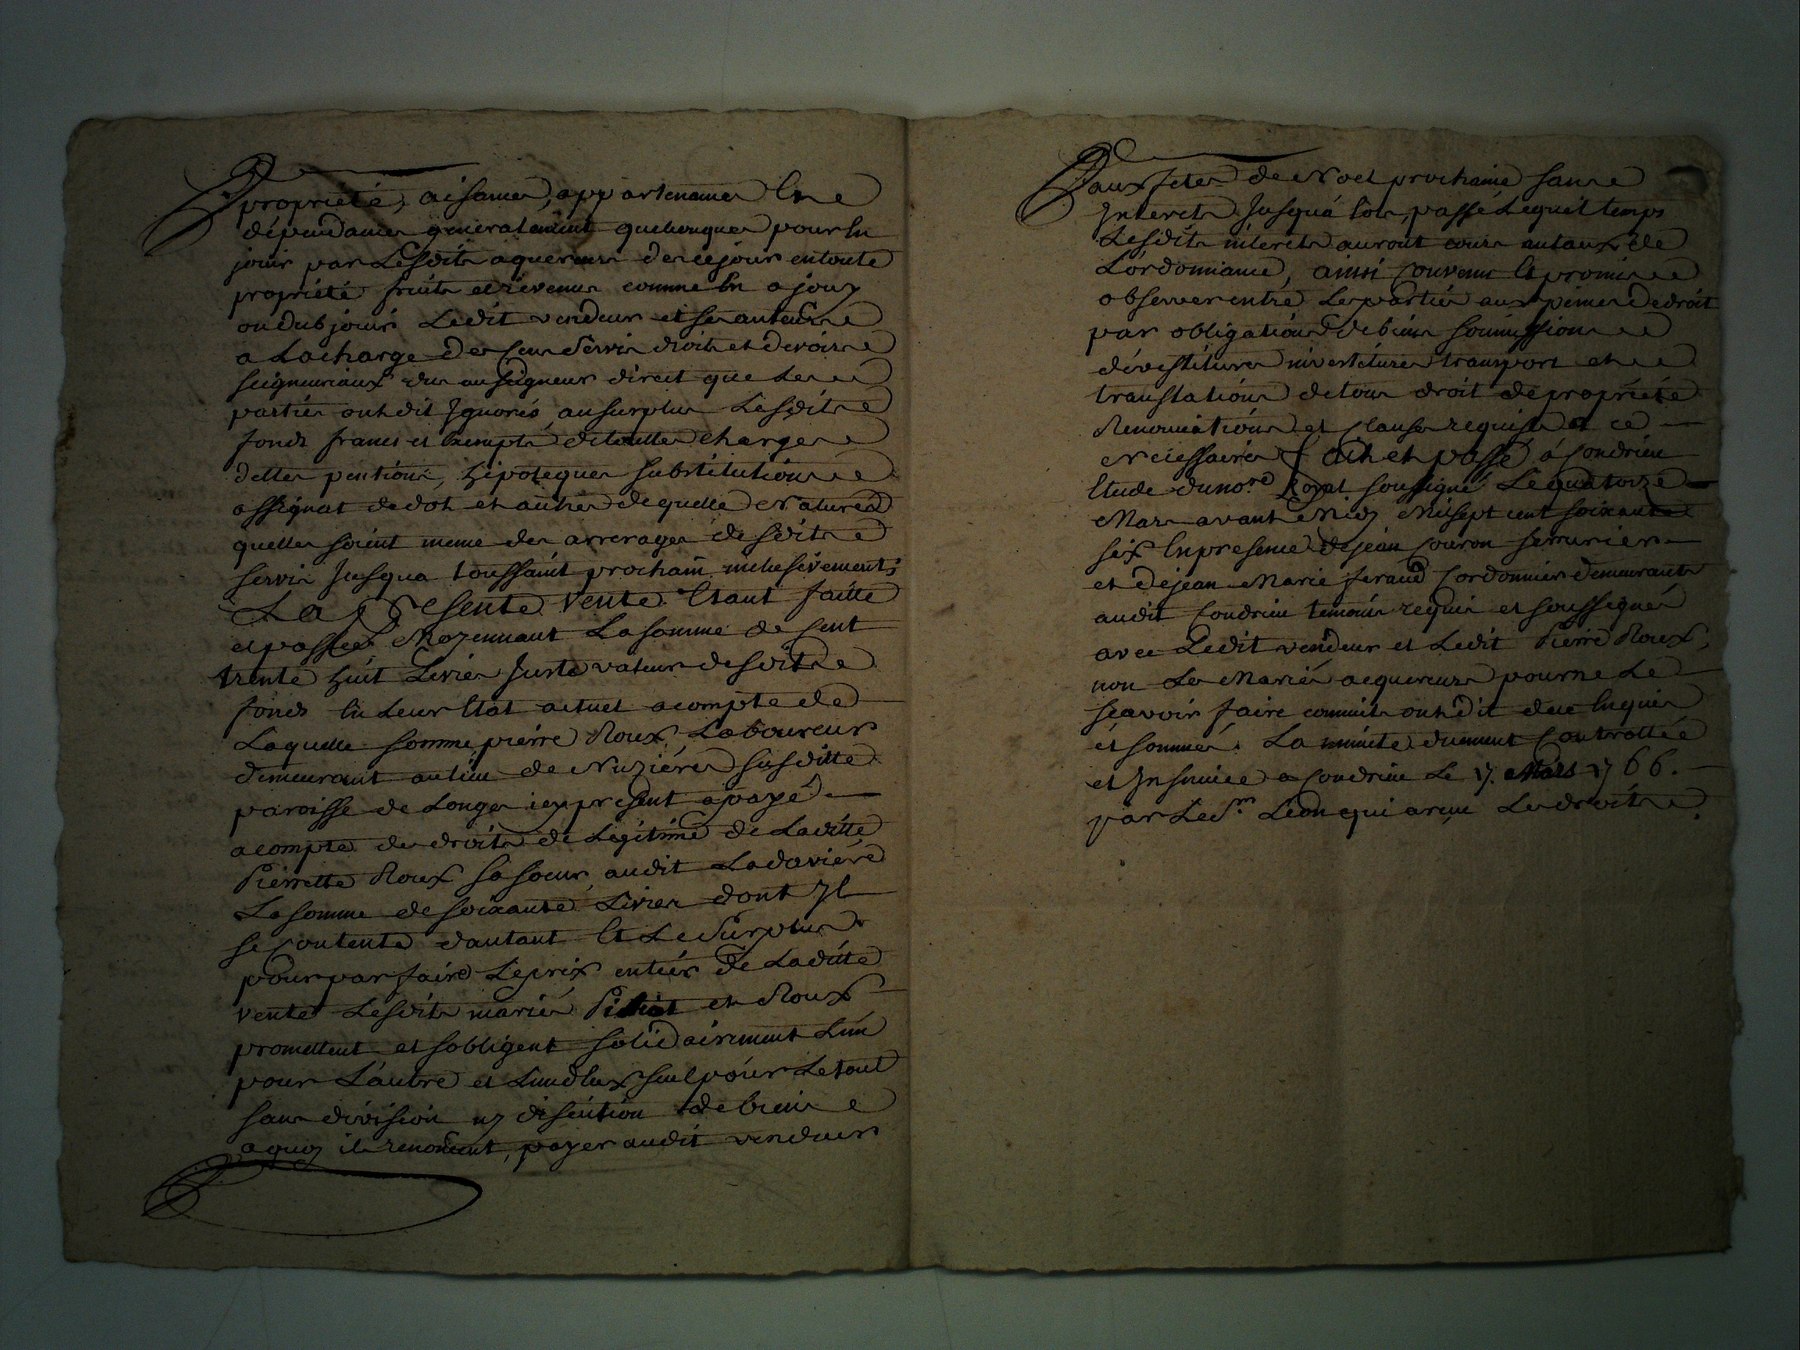 propriété, aisances, appartenances En
dépendances généralement quelconques pour En
jouir par Lesdits aquereurs des cejour entoute
propriété fruits et revenus comme En a jouy
ou dub jouir Ledit vendeur et ses auteurs
a Lacharge des Cens Servis droits et devoirs
seigneuriaux dus au seigneur direct que Les
parties ont dit Ignorés ausurplus Lesdits
fonds francs et Exempts detouttes charges
dettes pentions, hipoteques substitutions
assignat dedot et autres dequelle Nature
quelles soient meme des arrerages desdits
servis Jusqua toussaint prochain inclusivement;
La presente vente Etant faitte
et passée Moyennant Lasomme de Cent
trente huit Livres Juste valeur desdits
fonds En Leur Etat actuel acompte de
Laquelle somme pierre Roux Laboureur
demeurant aulieu de Nuzieres susditte
paroisse de Longes icy present apayé
acompte des droits de Legitime de Laditte
Pierrette Roux sa soeur audit Ladaviere
Lasomme de soixante Livres dont Jl
se Contente dautant Et Le Surplus
pour parfaire Leprix entier de Laditte
vente Lesdits mariés et Roux
promettent et sobligent solidairement Lun
pour L'autre et Lundeux seul pour Letout
sans division ny discution de biens
aquoy ils renoncent, payer audit vendeur
aux fetes de Noel prochaine sans
Interets Jusqu'a Lors, passé Lequel temps
Lesdits interets auront cours autaux de
L'ordonnance, ainsi Convenu Et promis
observer entre Les parties aux peines dedroit
par obligations debiens soumissions
dévestitures investitures transport et
translations detous droits depropriété
Renonciations et Clauses requises et
Necessaires Fait et passé à Condrieu
Etude du no.re Royal soussigné Le quatorze
Mars avant Midy Milsept cent soixante
six En presence de jean Couron serrurier
et de jean Marie feraud Cordonnier demeurants
audit Condrieu temoins requis et soussignés
avec Ledit vendeur et Ledit Pierre Roux,
non Les Mariés acquereurs pour ne Le
scavoir faire comme ils ont dit dece Enquis
et sommés. La minute duement Controllée
et Insinuée a Condrieu Le 17. Mars 1766.
par Le S.r Leon qui areçu Les droits.